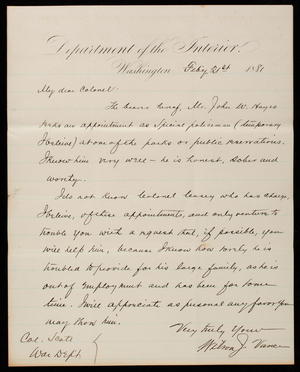 Department of the Interior.
Washington Feby 21st 1881
My dear Colonel
The bearer hereof, Mr. John W. Hayes
seeks an appointment as Special policeman (temporary
at one of the parks or public reservations.
I know him very well - he is honest, sober and
worthy.
I do not know Colonel Casey who has charge,
of these appointments, and only venture to
trouble you with a request that, if possible, you
will help him, because I know how sorely he is
troubled to provide for his large family, as he is
out of employment and has been for some
time. I will appreciate as personal any favor you
may show him.
Very truly yours
Wilson J. Vance
Col. Scott
War Dept